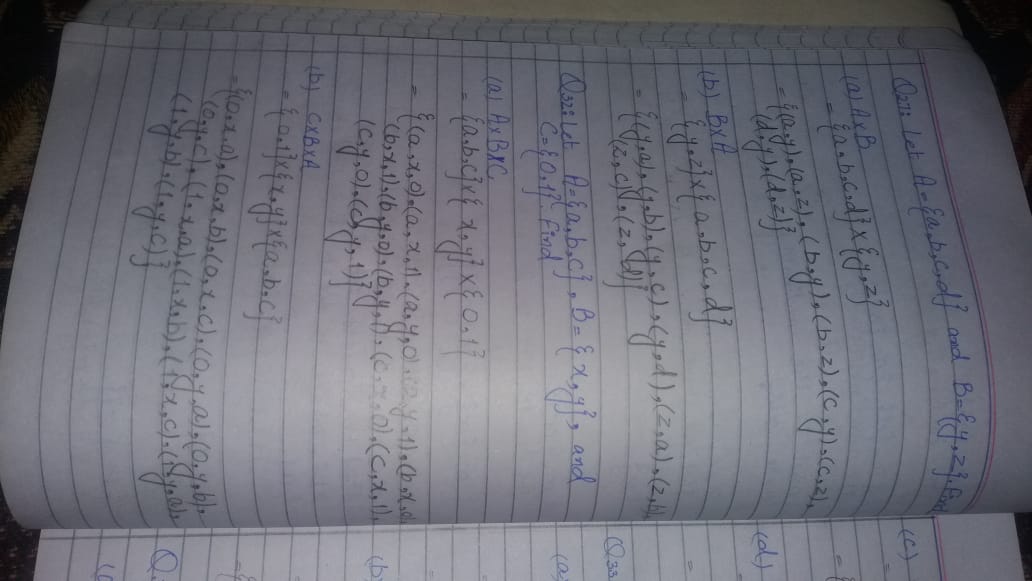 Q27: Let A={a,b,c,d} and B={y,z}. Find
(a) A×B
= {a,b,c,d}×{y,z}
= {(a,y),(a,z),(b,y),(b,z),(c,y),(c,z),
(d,y),(d,z)}
(b) B×A
= {y,z}×{a,b,c,d}
= {(y,a),(y,b),(y,c),(y,d),(z,a),(z,b),
(z,c),(z,d)}
Q32: Let A={a,b,c}, B={x,y}, and
C={0,1}. Find
(a) A×B×C
= {a,b,c}×{x,y}×{0,1}
= {(a,x,0),(a,x,1),(a,y,0),(a,y,1),(b,x,0),
(b,x,1),(b,y,0),(b,y,1),(c,x,0),(c,x,1),
(c,y,0),(c,y,1)}
(b) C×B×A
= {0,1}×{x,y}×{a,b,c}
= {(0,x,a),(0,x,b),(0,x,c),(0,y,a),(0,y,b),
(0,y,c),(1,x,a),(1,x,b),(1,x,c),(1,y,a),
(1,y,b),(1,y,c)}
(c)
=
=
(d)
=
Q33
(a)
=
(b)
=
Q.